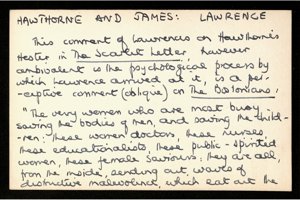 HAWTHORNE AND JAMES: LAWRENCE
This comment of Lawrence's on Hawthorne's
Hester in The Scarlet Letter, however
ambivalent is the psychological process by
which Lawrence arrived at it, is a per-
ceptive comment (oblique) on The Bostonians.
"The very women who are most busy
saving the bodies of men, and saving the child-
ren: these women doctors, these nurses,
these educationalists, these public-spirited
women, these female saviours: they are all,
from the inside, sending out waves of
destructive malevolence, which eat out the